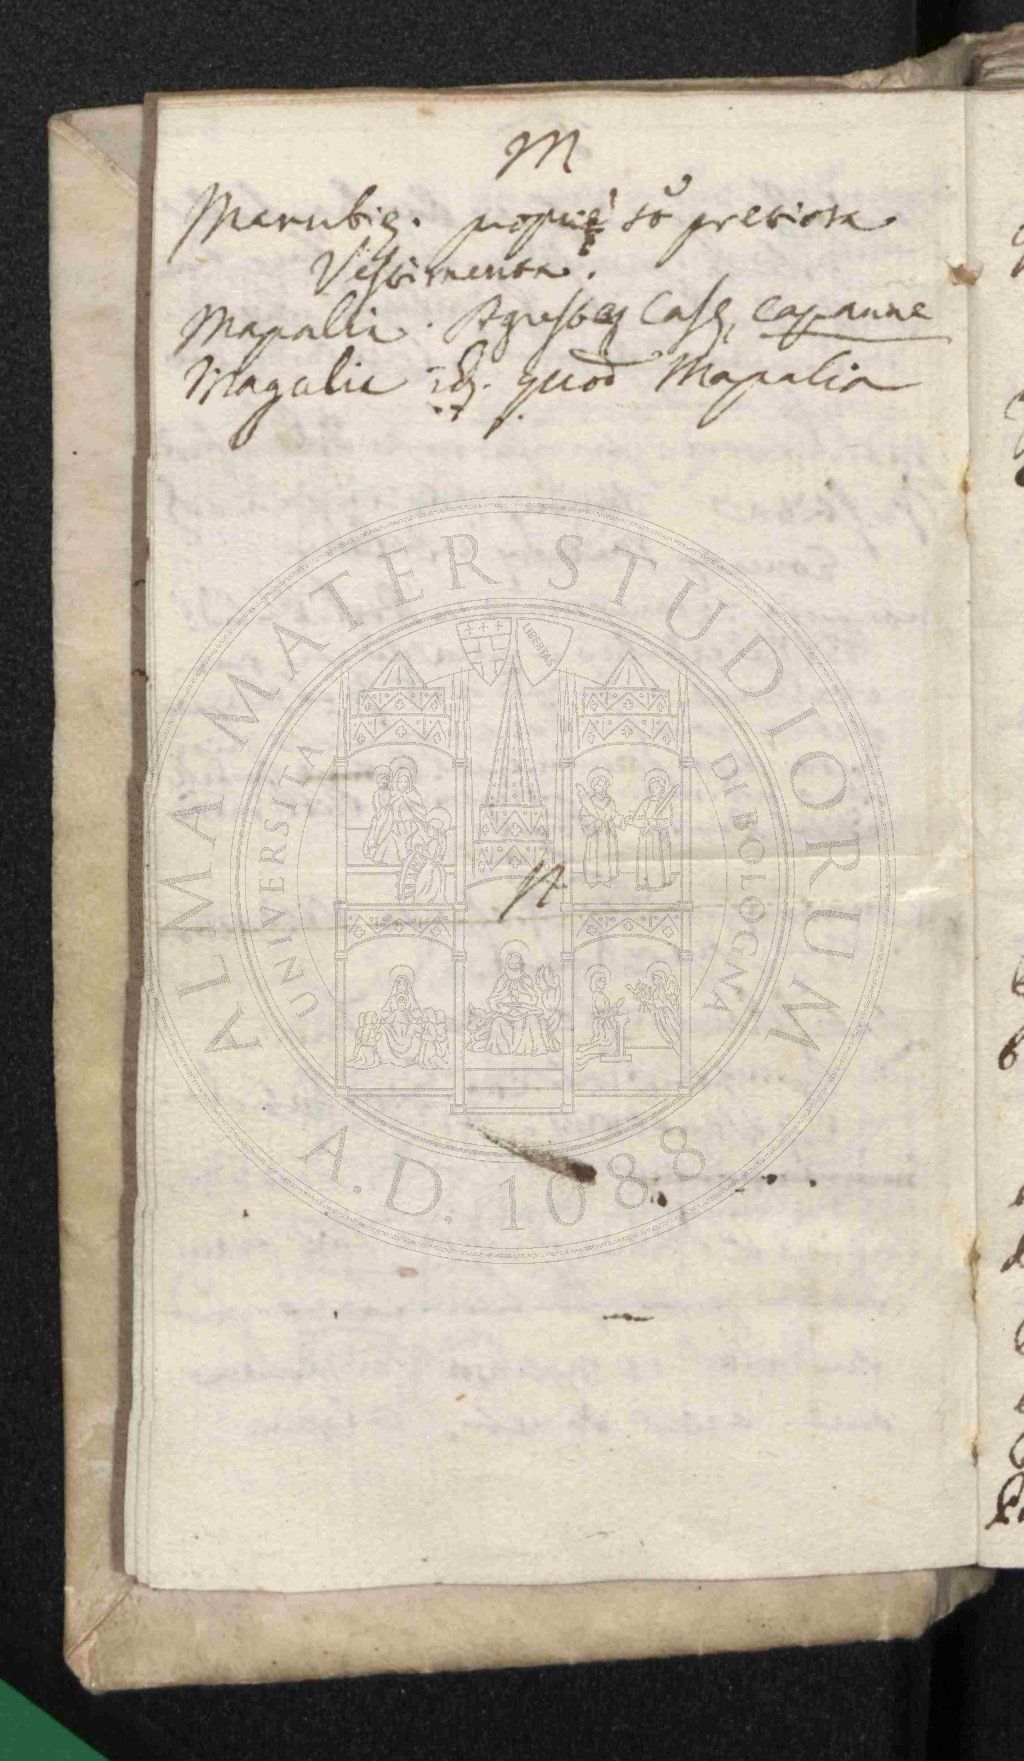 M
Manubię. propriè sũ pretiosa
Vestimenta.
Mapalia. Agrestes Casę, capanne
Magalia id. quod Mapalia
N
ALMA MATER STUDIORUM
UNIVERSITA DI BOLOGNA
LIBERTAS
A.D. 1088